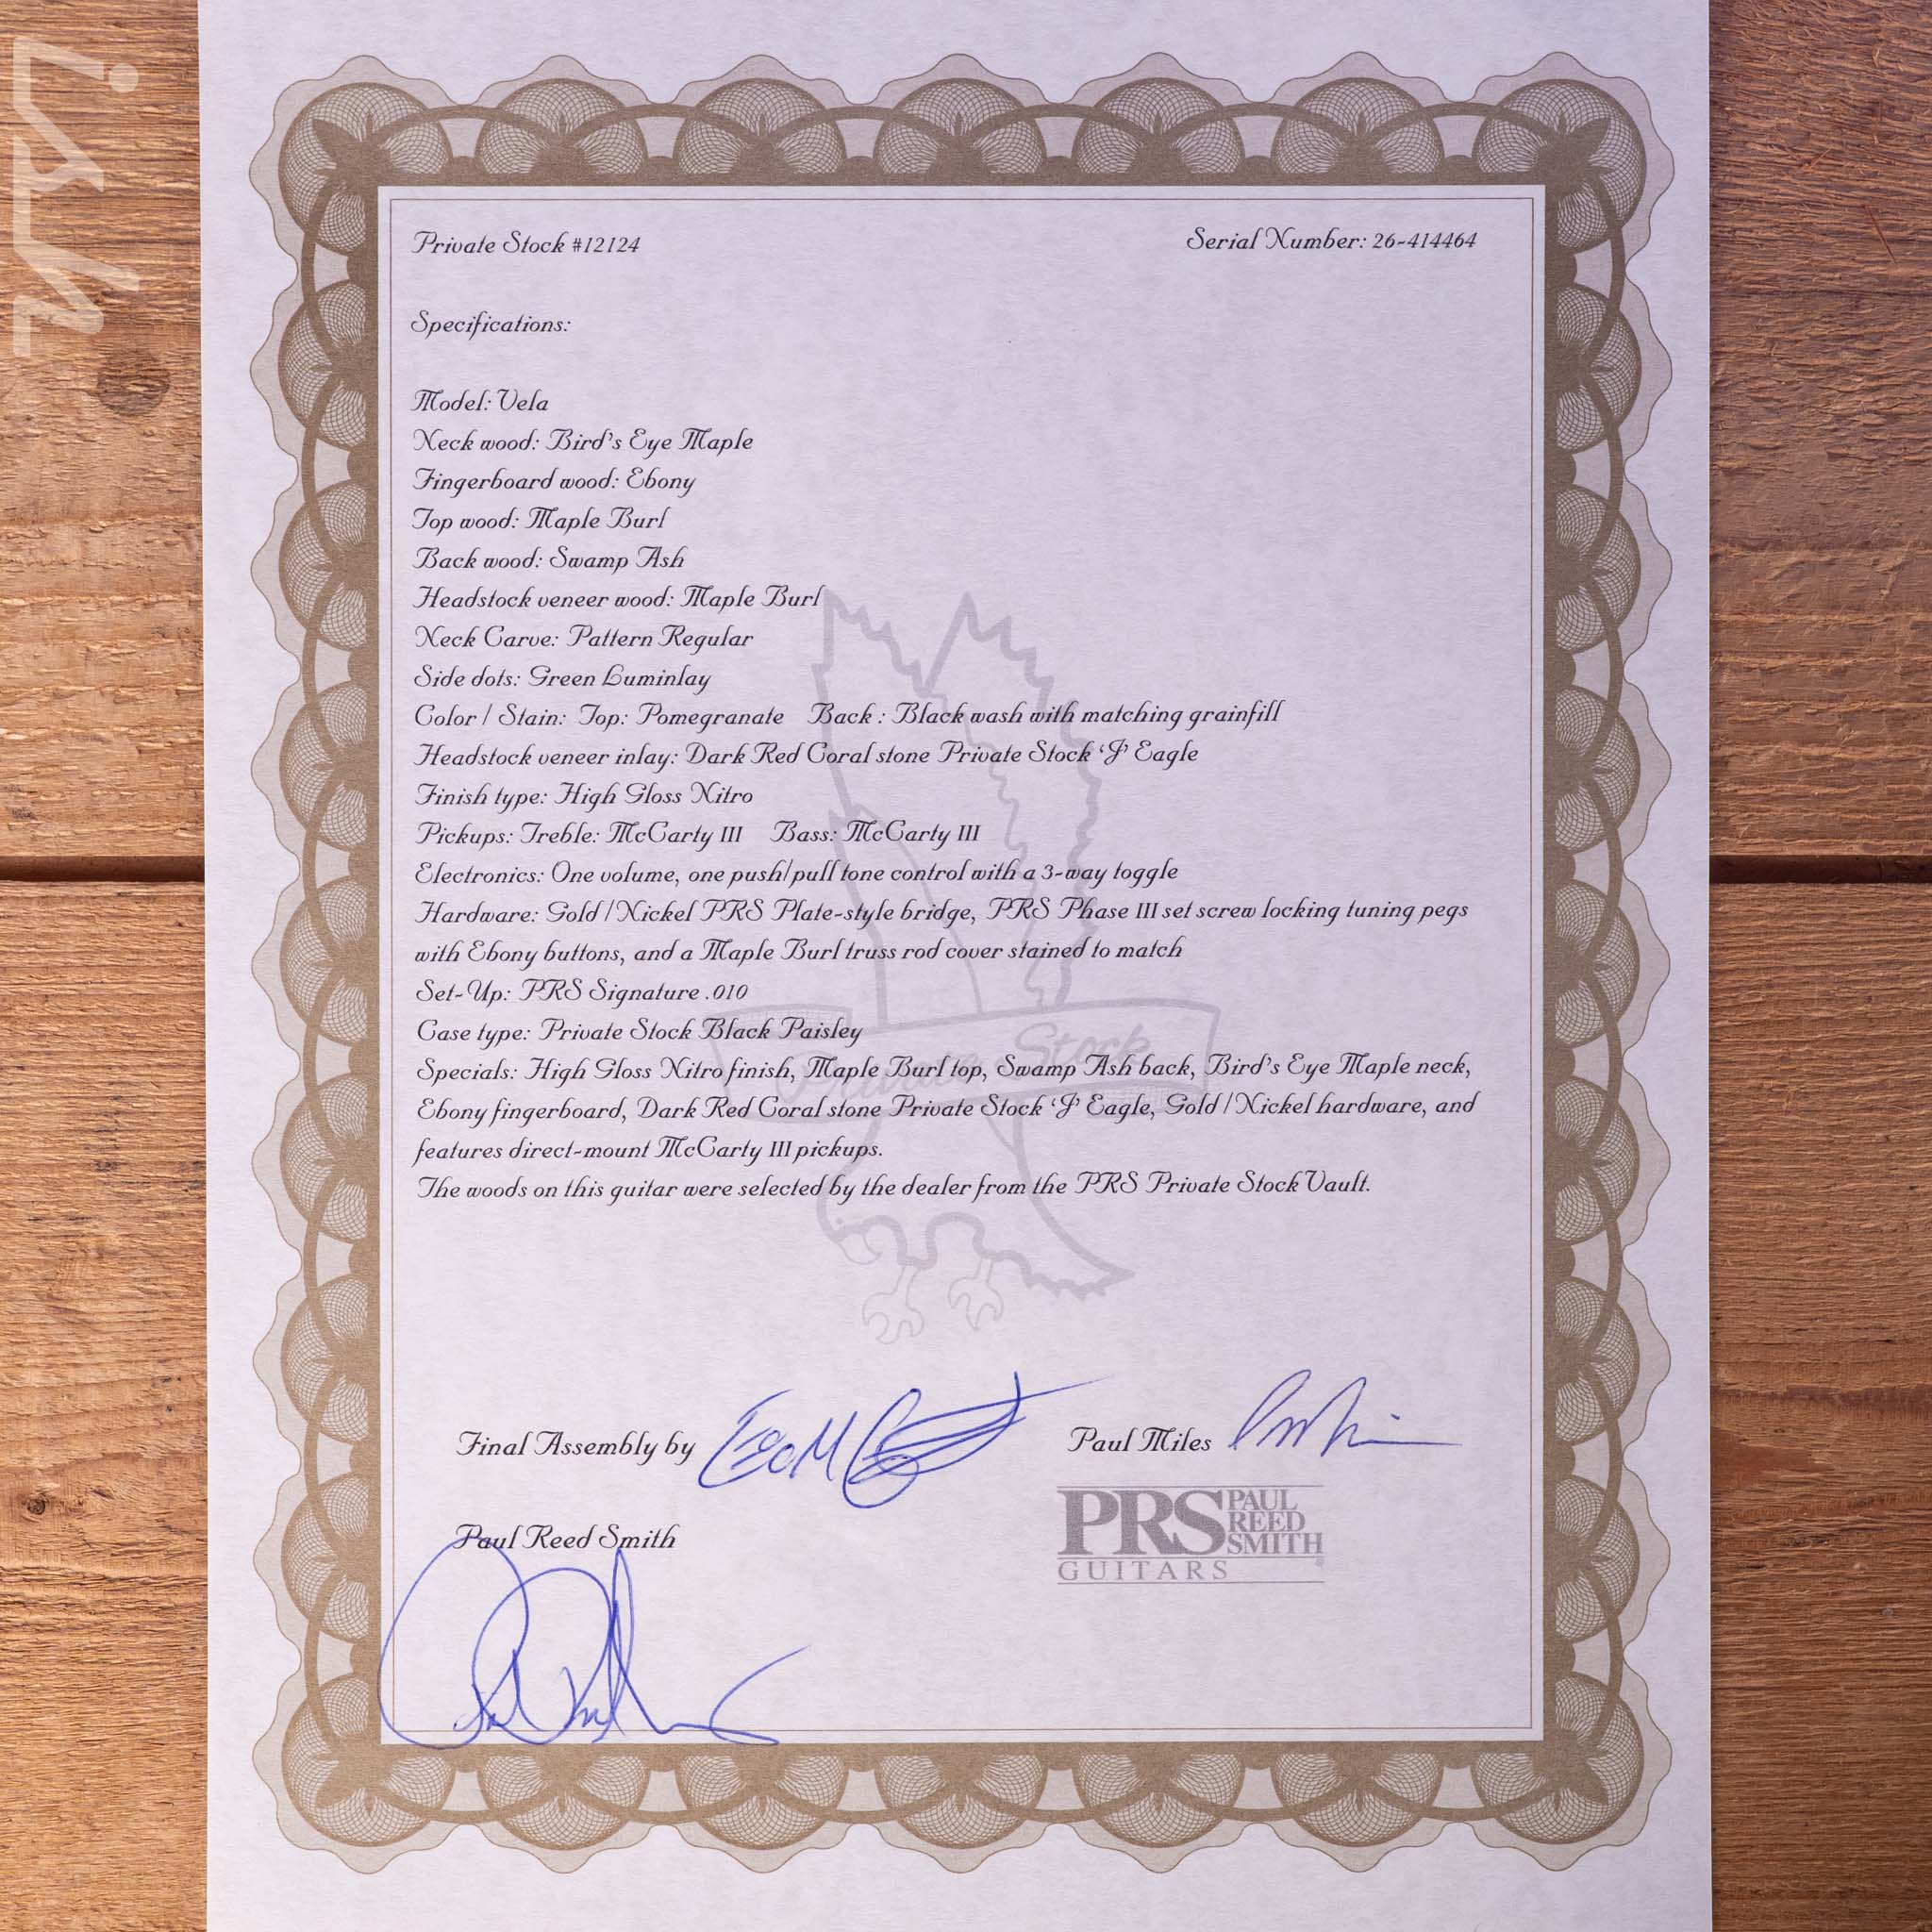 ish
Private Stock #12124
Serial Number: 26-414464
Specifications:
Model: Vela
Neck wood: Bird's Eye Maple
Fingerboard wood: Ebony
Top wood: Maple Burl
Back wood: Swamp Ash
Headstock veneer wood: Maple Burl
Neck Carve: Pattern Regular
Side dots: Green Luminlay
Color / Stain: Top: Pomegranate Back : Black wash with matching grainfill
Headstock veneer inlay: Dark Red Coral stone Private Stock ‘J’ Eagle
Finish type: High Gloss Nitro
Pickups: Treble: McCarty III Bass: McCarty III
Electronics: One volume, one push/pull tone control with a 3-way toggle
Hardware: Gold / Nickel PRS Plate-style bridge, PRS Phase III set screw locking tuning pegs
with Ebony buttons, and a Maple Burl truss rod cover stained to match
Set-Up: PRS Signature .010
Case type: Private Stock Black Paisley
Private Stock
Specials: High Gloss Nitro finish, Maple Burl top, Swamp Ash back, Bird's Eye Maple neck,
Ebony fingerboard, Dark Red Coral stone Private Stock ‘J’ Eagle, Gold / Nickel hardware, and
features direct-mount McCarty III pickups.
The woods on this guitar were selected by the dealer from the PRS Private Stock Vault.
Final Assembly by
Paul Miles
Paul Reed Smith
PRS PAUL REED SMITH
GUITARS